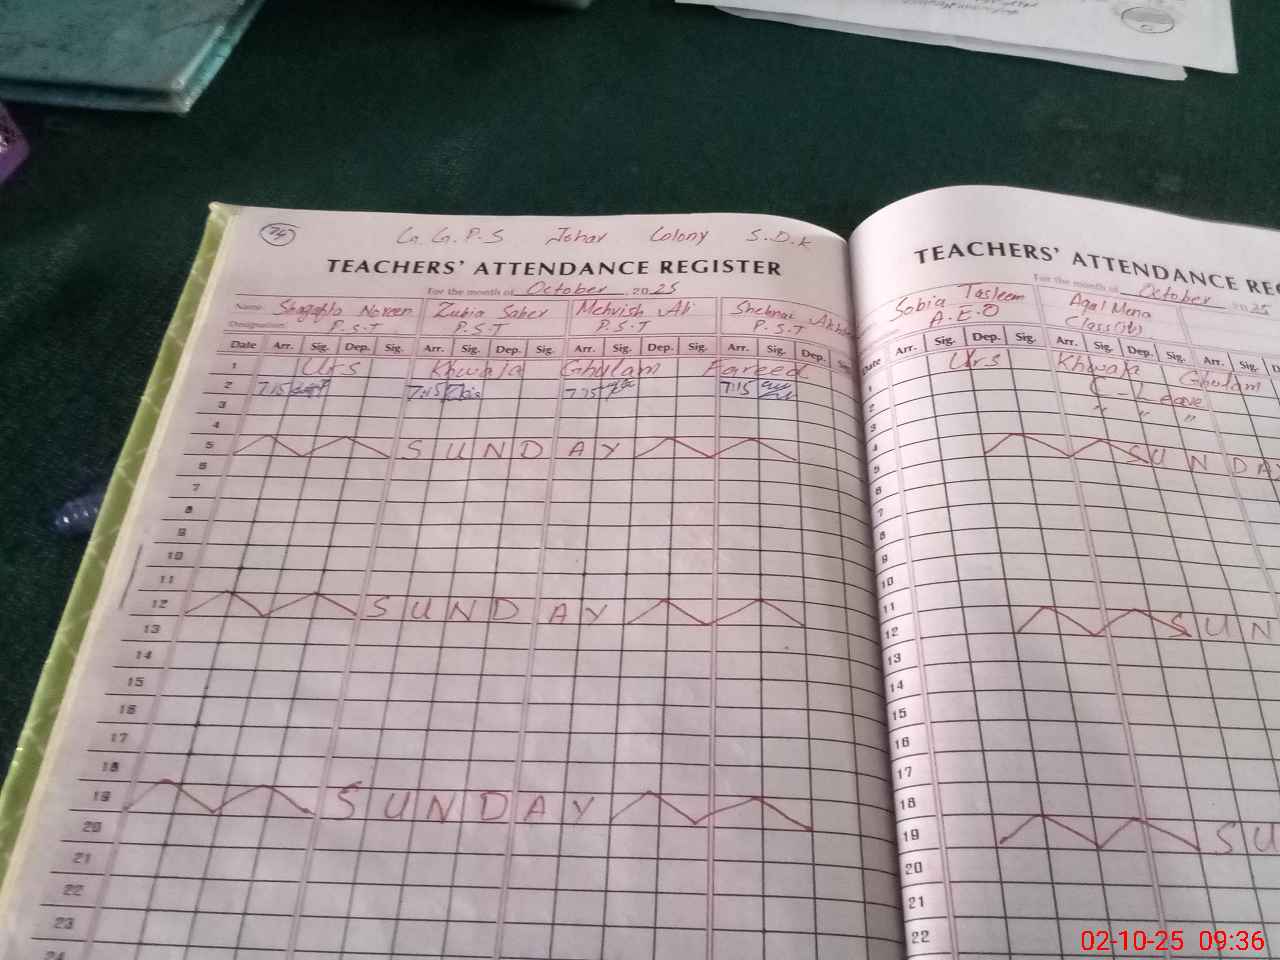 74
G.G.P.S Johar Colony S.D.K
TEACHERS' ATTENDANCE REGISTER
For the month of October 2025
Name Shagufta Noreen Zubia Saher Mehvish Ali Shehnaz
Designation P.S.T P.S.T P.S.T P.S.T
Date Arr. Sig. Dep. Sig. Arr. Sig. Dep. Sig. Arr. Sig. Dep. Sig. Arr. Sig. Dep.
1 Urs Khwaja Ghulam Fareed
2 7:15 7:15 7:15
3
4
5 SUNDAY
6
7
8
9
10
11
12 SUNDAY
13
14
15
16
17
18
19 SUNDAY
20
21
22
23
24
TEACHERS' ATTENDANCE REG
For the month of October 2025
Sobia Tasleem Aqal Mena
A.E.O Class(iv)
Date Arr. Sig. Dep. Sig. Arr. Sig. Dep. Sig. Arr. Sig. D
1 Urs Khwaja Ghulam
2 C-Leave
3 " " "
4
5 SUNDAY
6
7
8
9
10
11
12 SUN
13
14
15
16
17
18
19 SU
20
21
22
02-10-25 09:36